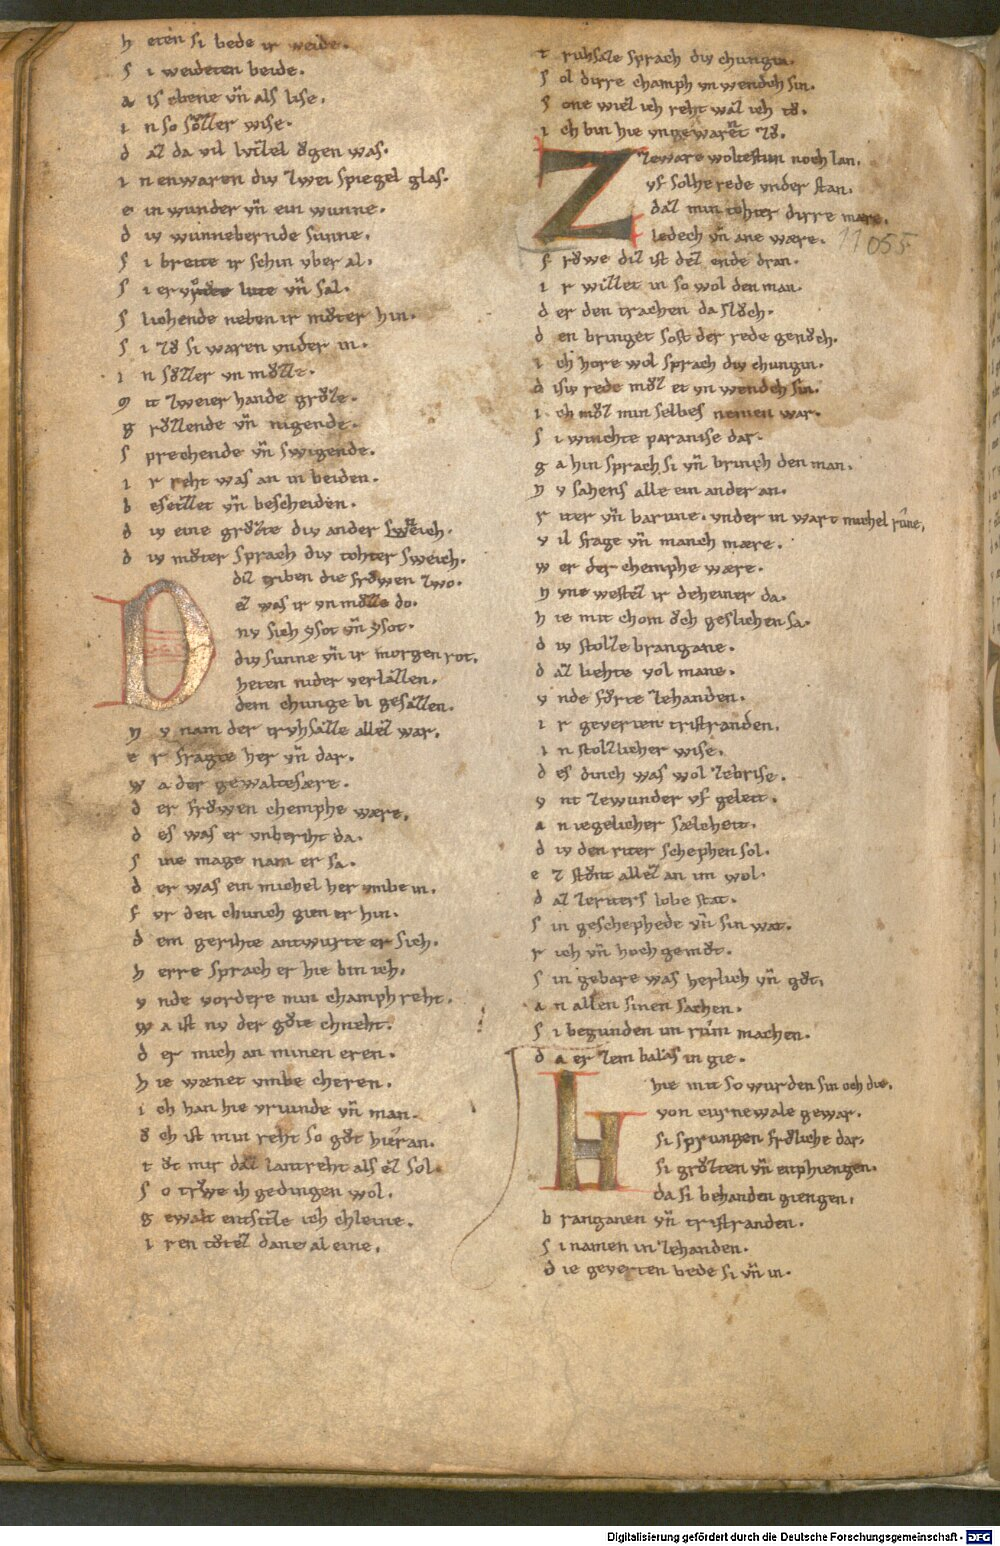 h eten si bede ir weide.
s i weideten beide.
a ls ebene vn̄ als lise.
i n so sv̊zzer wise.
d az da vil lvzzel ŏgen was.
i n enwaren div zwei spiegel glas.
e in wunder vn̄ ein wunne.
d iv wunnebernde sunne.
s i breite ir schin vber al.
s i er lute vn̄ sal.
s lichende neben ir mv̊ter hin.
s i zv̊ si waren vnder in.
i n sv̊zzer vnmv̊zze.
m it zweier hande grv̊ze.
g rv̊zzende vn̄ nigende.
s prechende vn̄ swigende.
i r reht was an in beiden.
b esetzzet vn̄ bescheiden.
d iv eine grv̊zte div ander neich.
d iv mv̊ter sprach div tohter sweich.
D diz triben die frŏwen zwo.
ez was ir vnmv̊zze do.
nv sich ysot vn̄ ysot.
div sunne vn̄ ir morgen rot.
heten nider verlazzen.
dem chunge bi gesazzen.
n v nam der truhsazze allez war.
e r fragte her vn̄ dar.
w a der gewaltesære.
d er frŏwen chemphe wære.
d es was er vnberiht da.
s ine mage nam er sa.
d er was ein michel her vmbe in.
f vr den chunich gien er hin.
d em gerihte antwurte er sich.
h erre sprach er hie bin ich.
v nde vordere min champhreht.
w a ist nv der gv̊te chneht.
d er mich an minen eren.
h ie wænet vmbe cheren.
i ch han hie vriunde vn̄ man.
ŏ ch ist min reht so gv̊t hier an.
t v̊t mir daz lantreht als ez sol.
s o trŏwe ih gedingen wol.
g ewalt entsitze ich chleine.
i r en tv̊tez danne al eine.
t ruhsaze sprach div chungin.
s ol dirre champh vnwendch sin.
s one wiez ich reht waz ich tv̊.
i ch bin hie vngewarnet zv̊.
Z zeware woltestun noch lan.
vf solhe rede vnder stan.
daz min tohter dirre mære.
ledech vn̄ ane wære.
11055
f rŏwe diz ist dez ende dran.
i r willet in so wol den man.
d er den trachen da slv̊ch.
d en bringet sost der rede genv̊ch.
i ch hore wol sprach div chungin.
d isiv rede mv̊z et vnwendch sin.
i ch mv̊z min selbes nemen war.
s i winchte paranise dar.
g a hin sprach si vn̄ brinch den man.
n v sahens alle ein ander an.
r iter vn̄ barune. vnder in wart michel rune.
v il frage vn̄ manch mære.
w er der chemphe wære.
n vne westez ir deheiner da.
h ie mit chom ŏch geslichen sa.
d iv stolze brangane.
d az liehte vol mane.
v nde fv̊rte zehanden.
i r geverten tristranden.
i n stolzlicher wise.
d es dinch was wol zebrise.
v nt zewunder vf geleit.
a n iegelicher sælcheit.
d iv den riter schephen sol.
e z stv̊nt allez an im wol.
d az zeriters lobe stat.
s in geschephede vn̄ sin wat.
r ich vn̄ hochgemv̊t.
s in gebare was herlich vn̄ gv̊t.
a n allen sinen sachen.
s i begunden im rum machen.
d a er zem balas in gie.
H hie mit so wurden sin och die.
von curnewale gewar.
si sprungen frŏliche dar.
si grv̊zten vn̄ enphiengen.
da si behanden giengen.
b ranganen vn̄ tristranden.
s i namen in zehanden.
d ie geverten bede si vn̄ in.
Digitalisierung gefördert durch die Deutsche Forschungsgemeinschaft - DFG